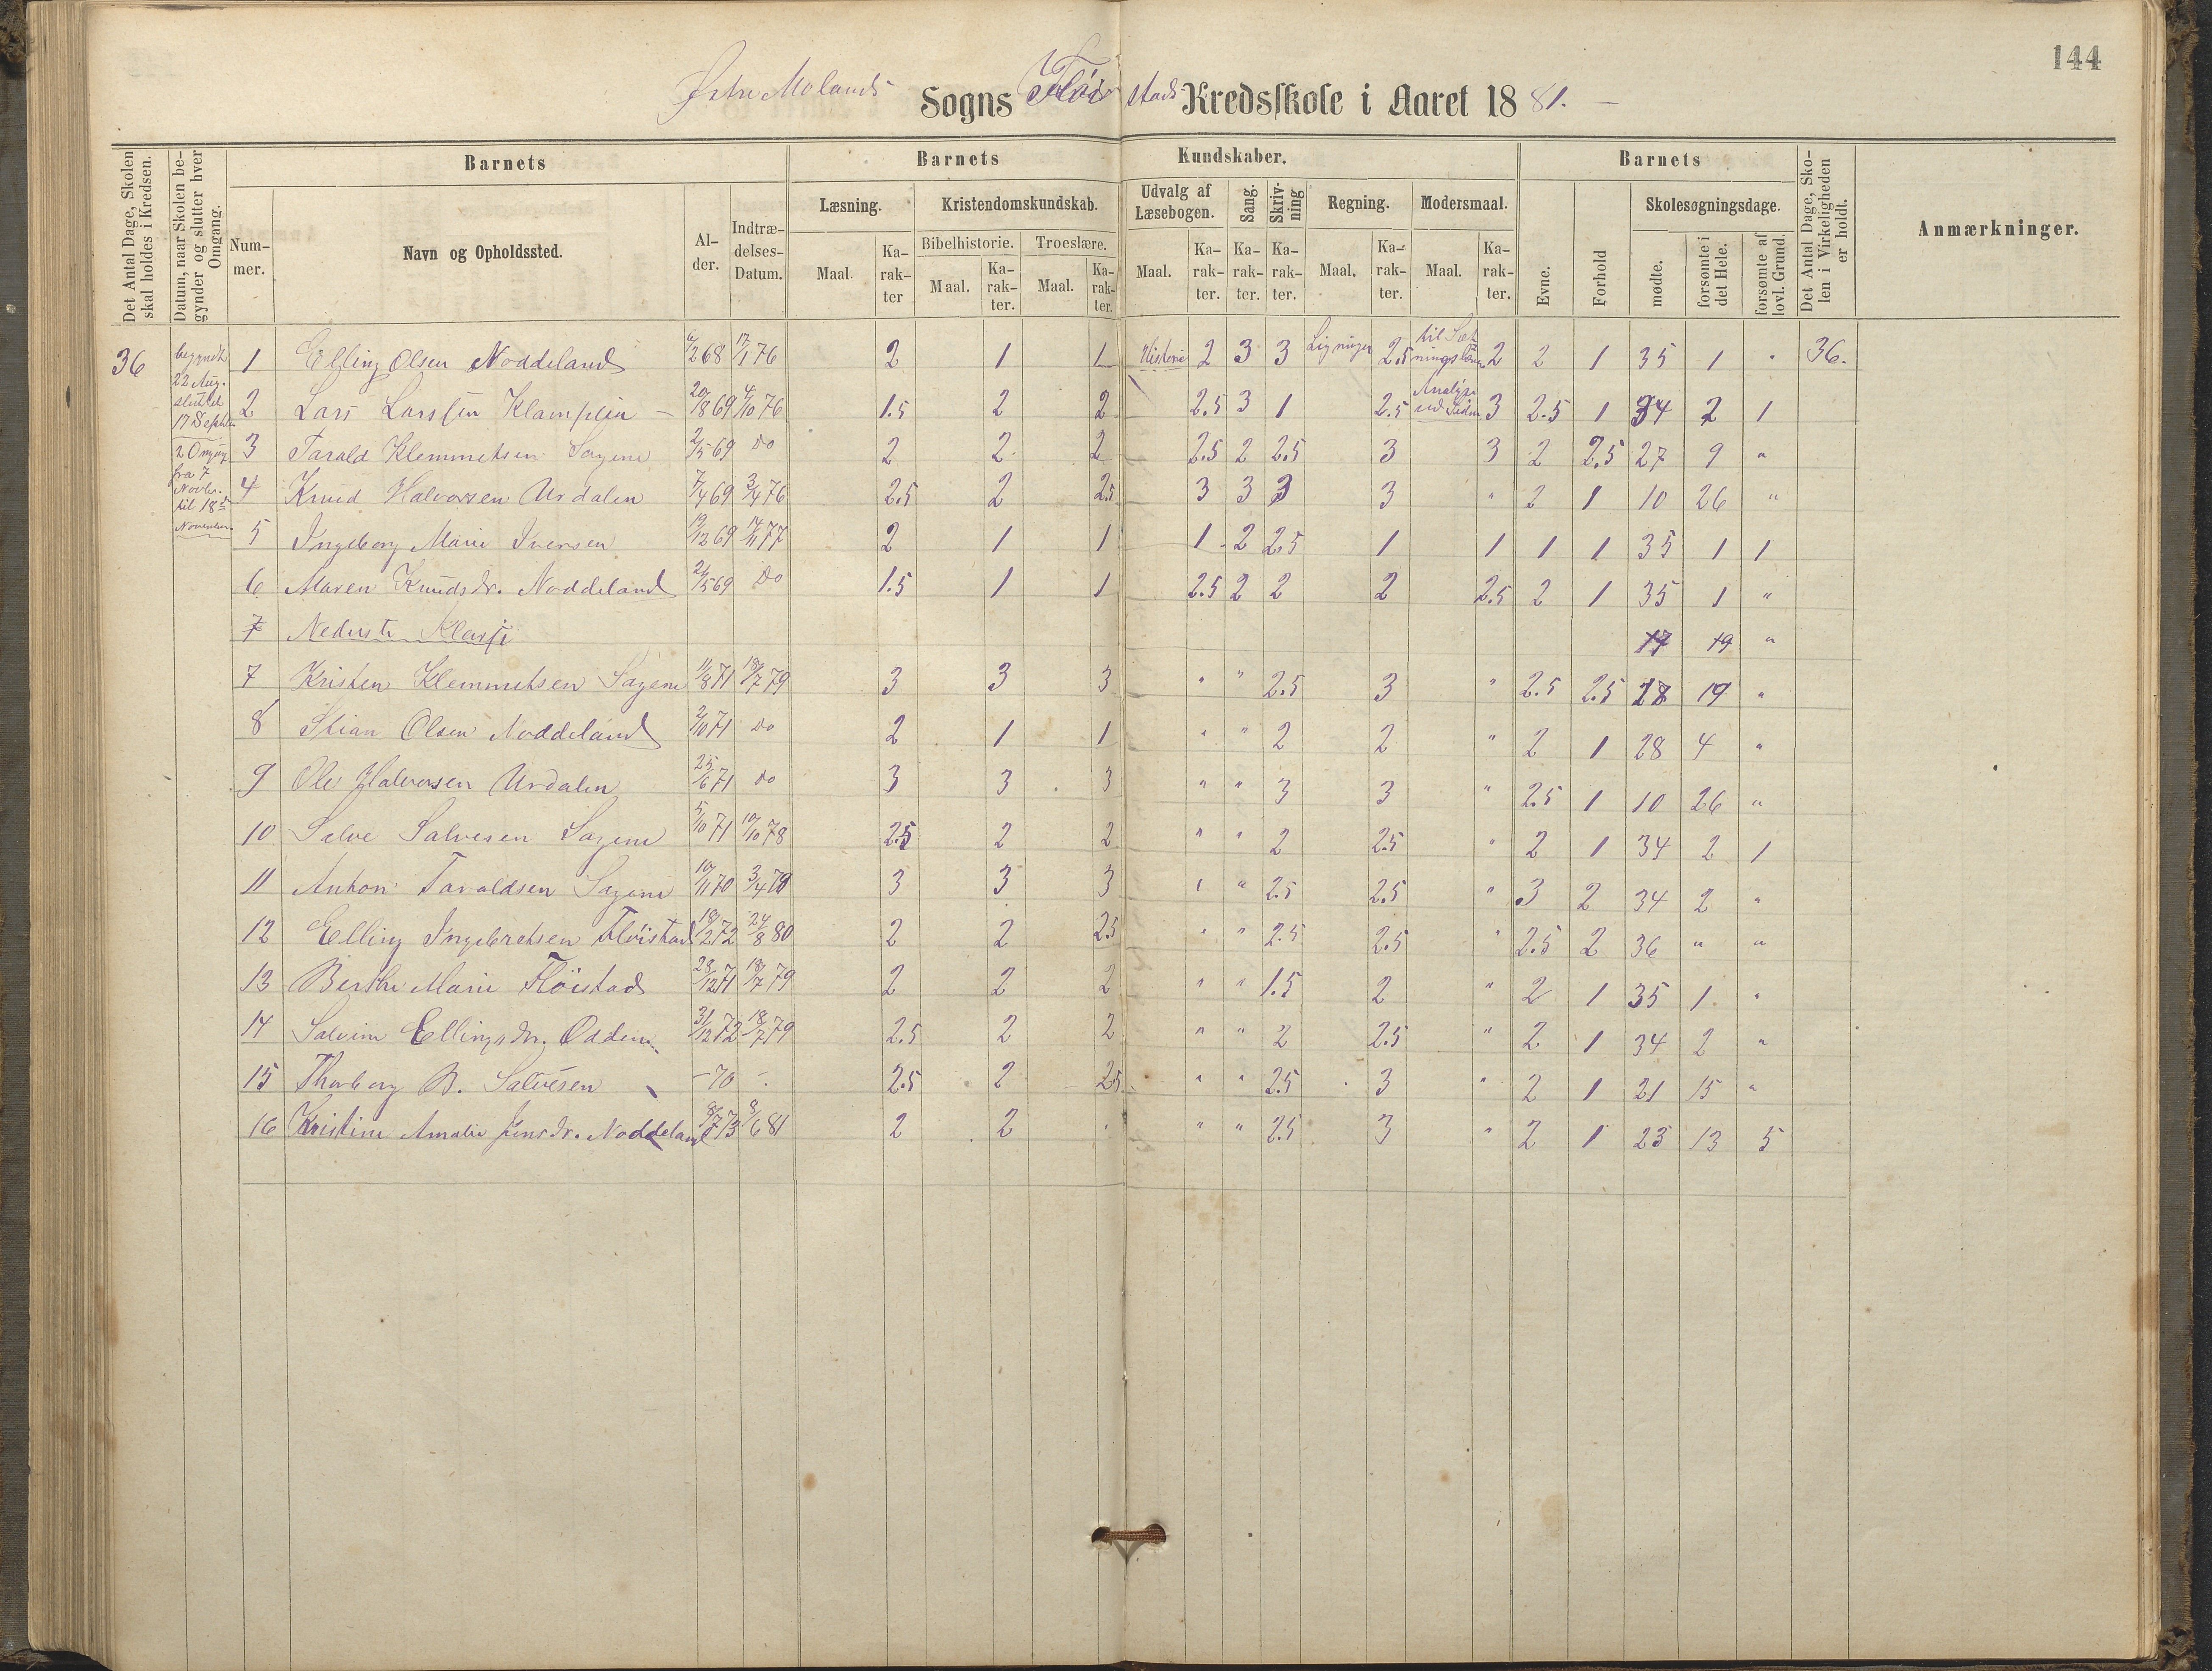 144
Østre Molands Sogns Flöistads Kredsskole i Aaret 1881. –
Det Antal Dage, Skolen skal holdes i Kredsen.
Datum, naar Skolen begynder og slutter hver Omgang.
Barnets
Barnets Kundskaber.
Barnets
Det Antal Dage, Skolen i Virkeligheden er holdt.
Anmærkninger.
Nummer.
Navn og Opholdssted.
Alder.
Indtrædelses-Datum.
Læsning.
Kristendomskundskab.
Udvalg af Læsebogen.
Sang.
Skrivning
Regning.
Modersmaal.
Evne.
Forhold
Skolesøgningsdage.
Bibelhistorie.
Troeslære.
Maal. Karakter Maal. Karakter. Maal. Karakter. Maal. Karakter. Karakter. Karakter. Maal. Karakter. Maal. Karakter.
mødte.
forsømte i det Hele.
forsømte af lovl. Grund.
36
begyndt
22 Aug.
sluttet
17 Septbr.
2 Omgang
fra 7
Novbr.
til 18de
November.
1 Elling Olsen Noddeland 6/2 68 17/1 76 2 1 1 Historie 2 3 3 Ligninger 2.5 til Sætningslære 2 2 1 35 1 " 36.
2 Lars Larssen 20/8 69 4/10 76 1.5 2 2 2.5 3 1 2.5 Analyse 3 2.5 1 34 2 1
3 Tarald Klemmetsen Sagene 2/5 69 do 2 2 2 2.5 2 2.5 3 3 2 2.5 27 9 "
4 Knud Halvorsen Urdalen 7/4 69 3/4 76 2.5 2 2.5 3 3 3 3 " 2 1 10 26 "
5 Ingeborg Marie Iversen 19/12 69 14/11 77 2 1 1 1 2 2.5 1 1 1 1 35 1 1
6 Maren Knudsdr. Noddeland 24/5 69 Do 1.5 1 1 2.5 2 2 2 2.5 2 1 35 1 "
7 Nederste Klasse 17 19 "
7 Kristen Klemmetsen Sagene 11/8 71 18/7 79 3 3 3 " " 2.5 3 " 2.5 2.5 18 19 "
8 Stian Olsen Noddeland 2/10 71 do 2 1 1 " " 2 2 " 2 1 28 4 "
9 Ole Halvorsen Urdalen 25/6 71 do 3 3 3 " " 3 3 " 2.5 1 10 26 "
10 Salve Salvesen Sagene 5/10 71 10/10 78 2.5 2 2 " " 2 2.5 " 2 1 34 2 1
11 Anton Taraldsen Sagene 10/11 70 3/4 79 3 3 3 " " 2.5 2.5 " 3 2 34 2 "
12 Elling Ingebretsen Flöistad 18/2 72 24/8 80 2 2 2.5 " " 2.5 2.5 " 2.5 2 36 " "
13 Berthe Marie Flöistad 28/12 71 18/7 79 2 2 2 " " 1.5 2 " 2 1 35 1 "
14 Salvine Ellingsdr. Odden 31/12 72 18/7 79 2.5 2 2 " " 2 2.5 " 2 1 34 2 "
15 Thorborg B. Salvesen – 70 – 2.5 2 2.5 " " 2.5 3 " 2 1 21 15 "
16 Kristine Amalie Jensdr. Noddeland 8/7 73 8/6 81 2 2 " " " 2.5 3 " 2 1 23 13 5